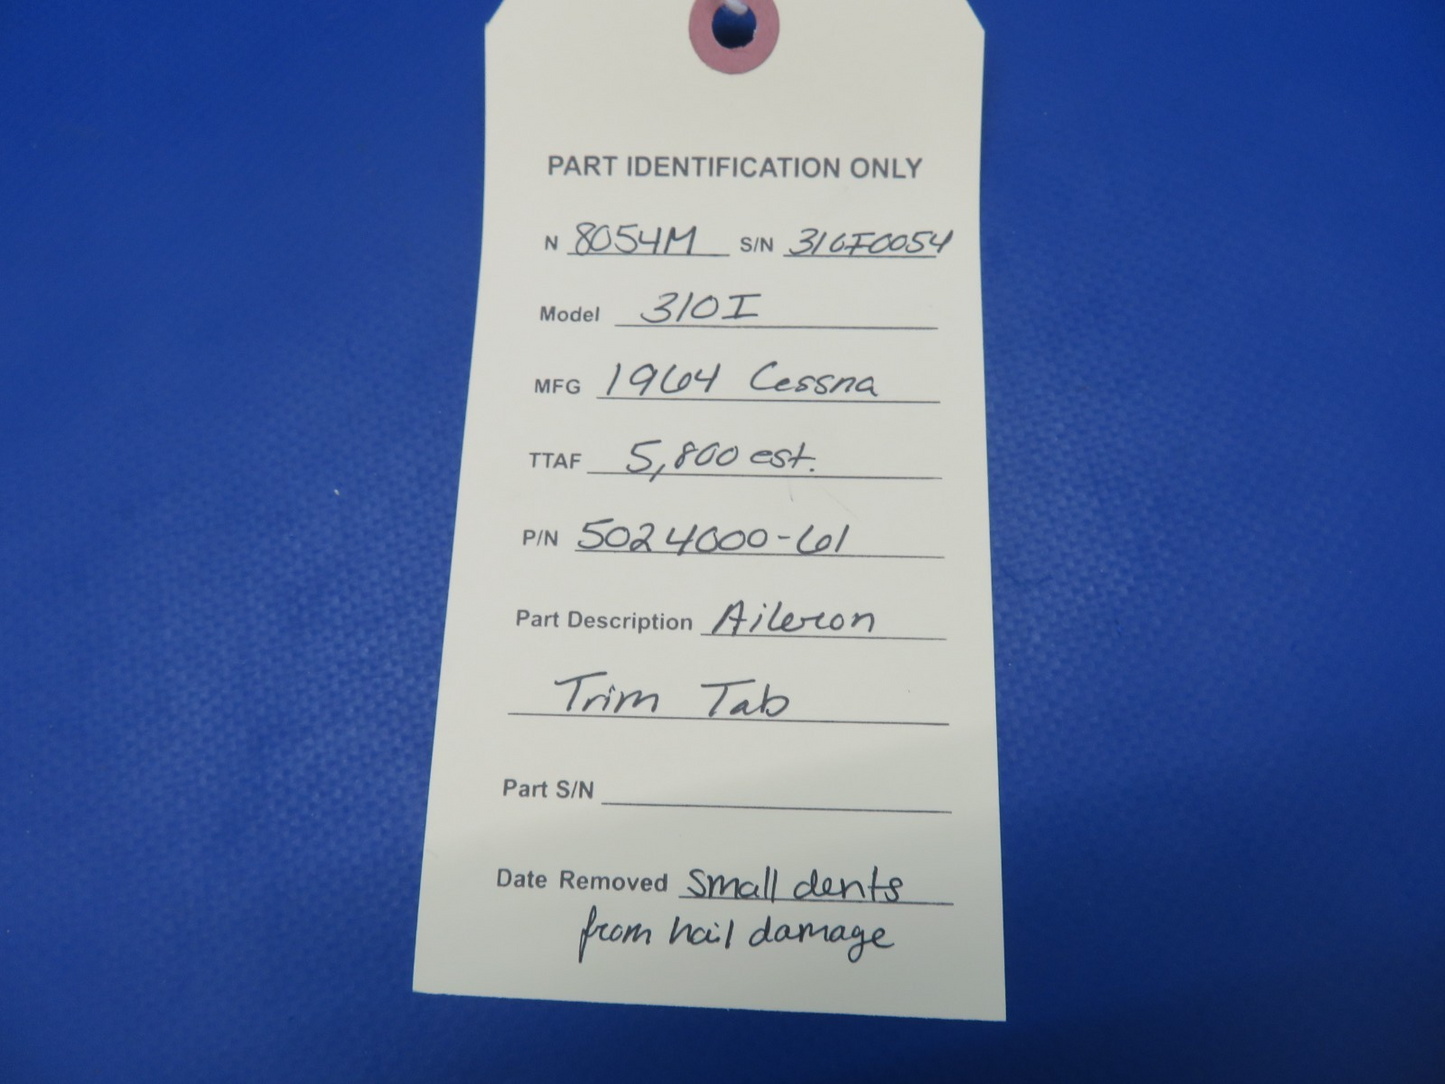 PART IDENTIFICATION ONLY
N 8054M S/N 310I0054
Model 310I
MFG 1964 Cessna
TTAF 5,800 est.
P/N 5024000-61
Part Description Aileron
Trim Tab
Part S/N
Date Removed Small dents
from hail damage